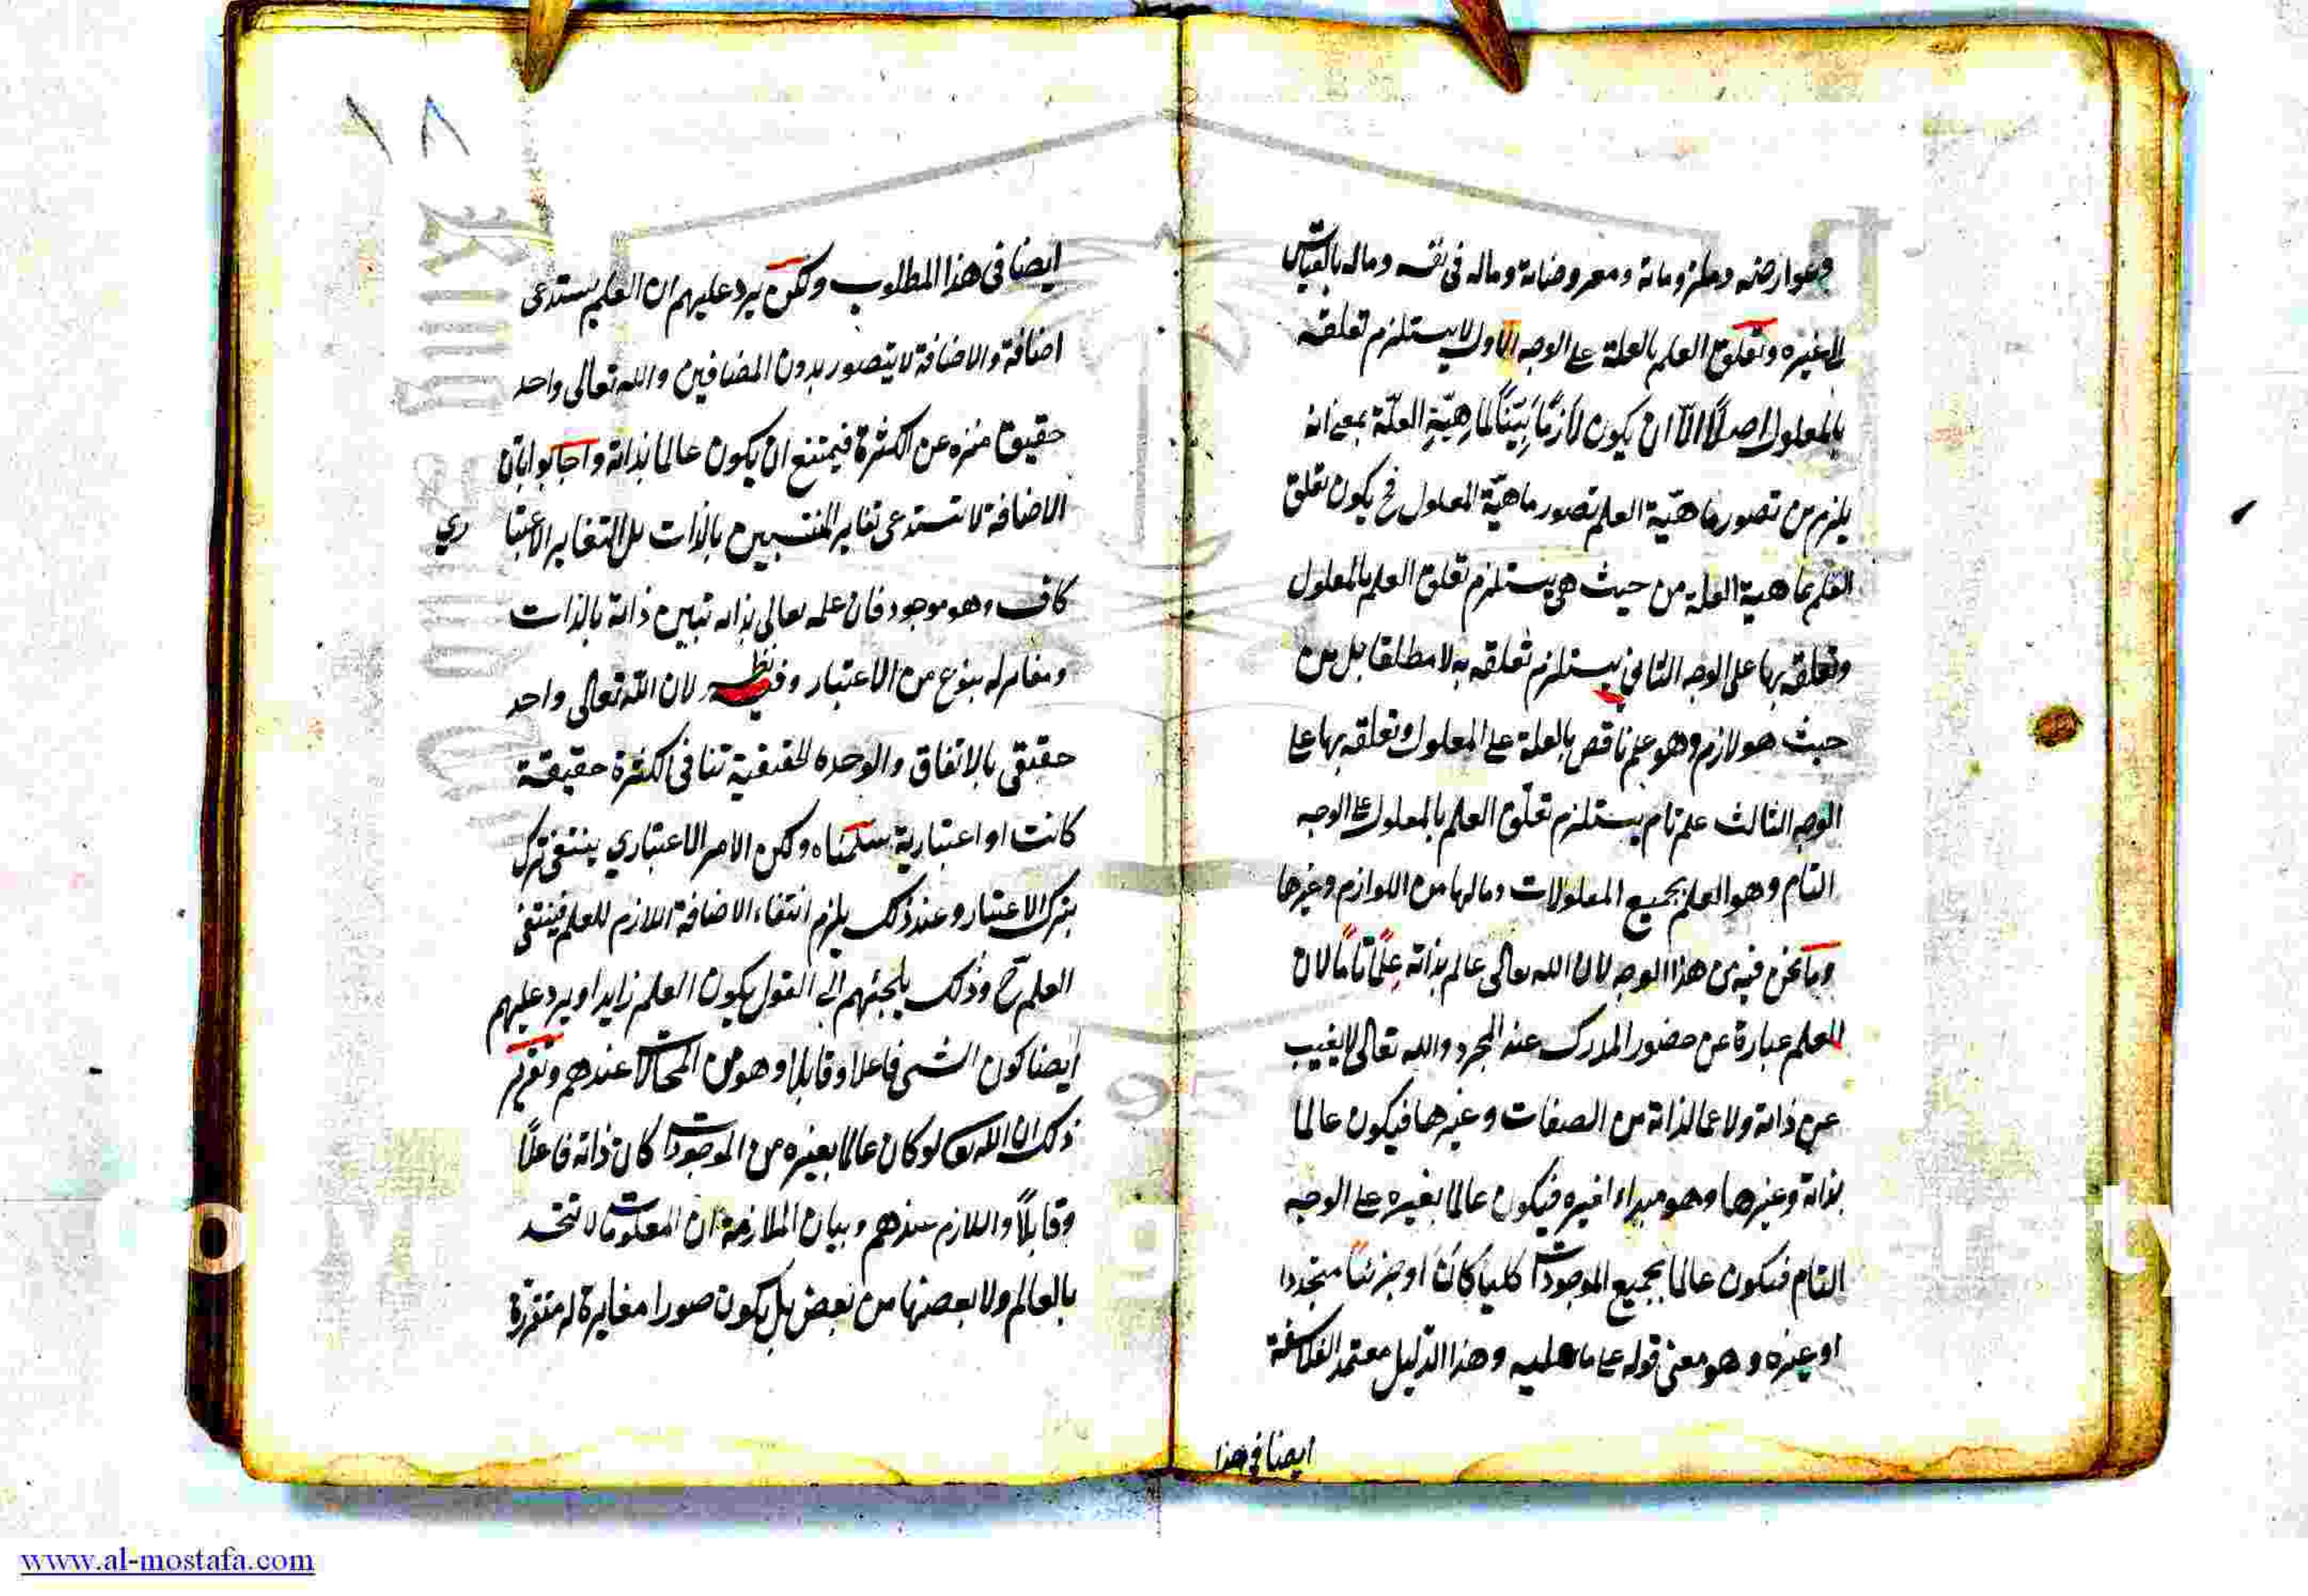 وعوارضه وملزوماته ومعروضاته وماله فى نفسه وماله بالقياس
الى غيره وتعلق العلم بالعلة على الوجه الاول لا يستلزم تعلقه
بالمعلول اصلاً الّا ان يكون لازمًا بيّنًا لماهيّة العلّة بمعنى انه
يلزم من تصور ماهيّة العلم تصور ماهيّة المعلول فح يكون تعلق
العلم بماهية العلة من حيث هى يستلزم تعلق العلم بالمعلول
وتعلقه بها على الوجه الثانى يستلزم تعلقه به لا مطلقا بل من
حيث هو لازم وهو علم ناقص بالعلة على المعلول وتعلقه بها على
الوجه الثالث علم تام يستلزم تعلّق العلم بالمعلول على الوجه
التام وهو العلم بجميع المعلولات ومالها من اللوازم وغيرها
وما نحن فيه من هذا الوجه لان الله تعالى عالم بذاته علمًا تامًا لان
العلم عبارة عن حضور المدرك عند المجرد والله تعالى لا يغيب
عن ذاته ولا عما لذاته من الصفات وغيرها فيكون عالما
بذاته وغيرها وهو مبداء لغيره فيكون عالما بغيره على الوجه
التام فيكون عالما بجميع الموجودات كليا كان او جزئيا متجددا
او غيره وهو معنى قوله على ما هى عليه وهذا الدليل معتمد الفلاسفة
ايضا فى هذا
١٨
ايضا فى هذا المطلوب ولكن يرد عليهم ان العلم يستدعى
اضافة والاضافة لا يتصور بدون المضافين والله تعالى واحد
حقيقى منزه عن الكثرة فيمتنع ان يكون عالما بذاته واجابوا بان
الاضافة لا تستدعى تغاير المنتسبين بالذات بل التغاير الاعتبا ري
كاف وهو موجود فان علمه تعالى بذاته تبين ذاته بالذات
ومغاير له بنوع من الاعتبار وفيه نظر لان الله تعالى واحد
حقيقى بالاتفاق والوحده الحقيقية تنافى الكثرة حقيقة
كانت او اعتبارية سلمناه ولكن الامر الاعتباري ينتفى بترك
بترك الاعتبار وعند ذلك يلزم انتفاء الاضافة اللازم للعلم فينتفى
العلم ح وذلك يلجئهم الى القول بكون العلم زايدا ويرد عليهم
ايضا كون الشى فاعلا وقابلا وهو من المحالات عندهم وتقرير
ذلك ان الله تعالى لو كان عالما بغيره من الموجودات كان ذاته فاعلًا
وقابلاً واللازم عندهم وبيان الملازمة ان المعلومات لا تتحد
بالعالم ولا بعضها من بعض بل يكون صورا مغايرة له متقررة
www.al-mostafa.com